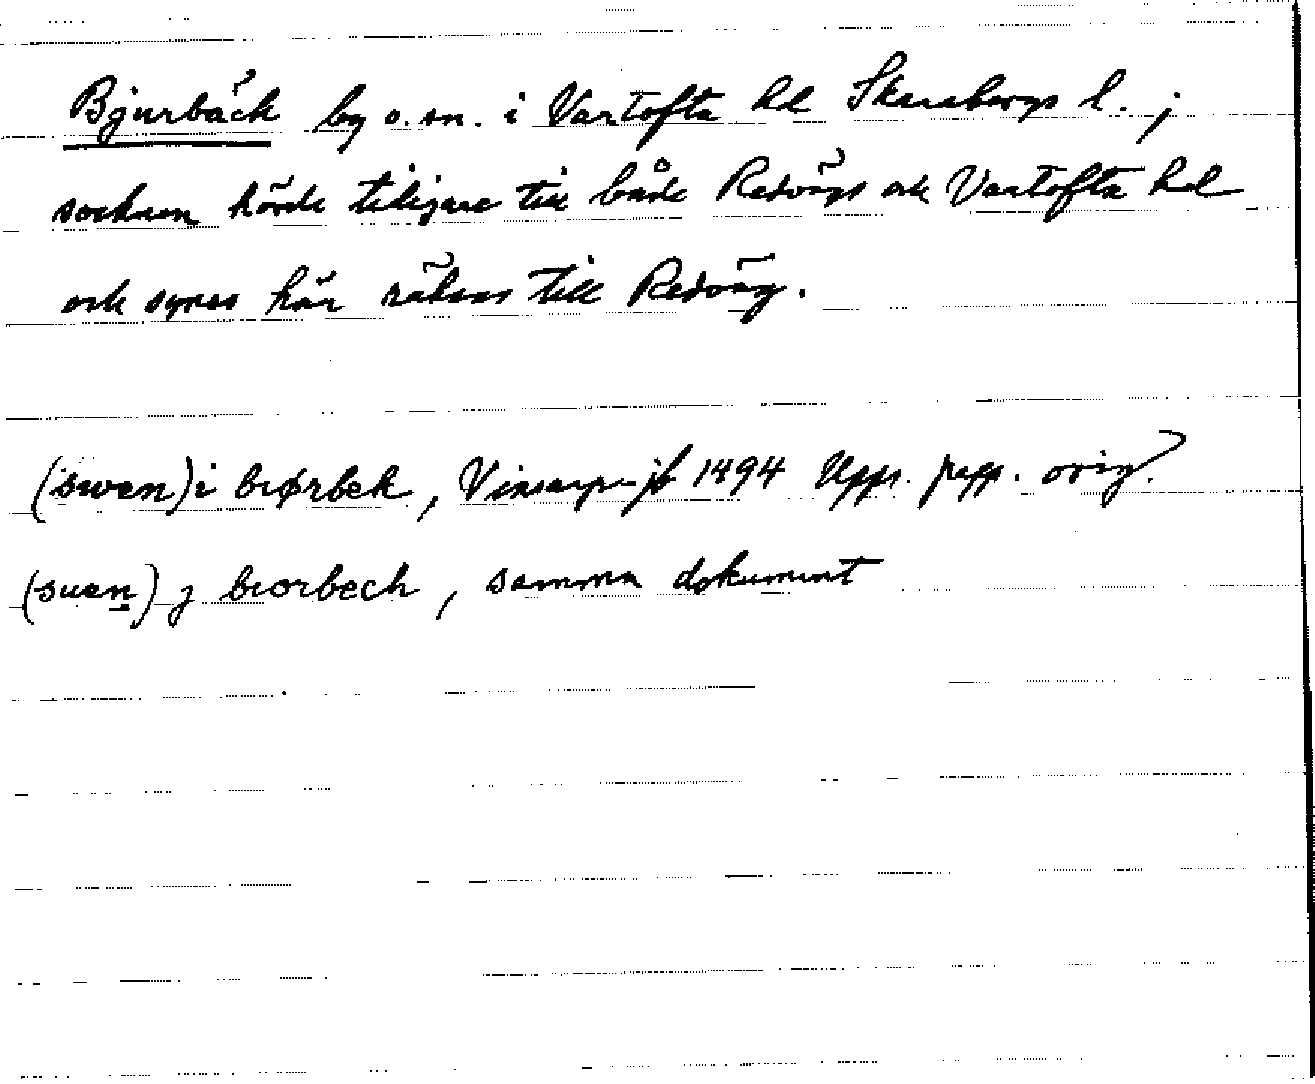 Bjurbäck by o. sn. i Vartofta hd Skaraborgs l. ;
socknen hörde tidigare till både Redvägs och Vartofta hd
och synes här räknas till Redväg.
(swen) i biørbek, Vinsarps jb 1494 Upps. papp. orig?
(suen) j biorbech, samma dokument